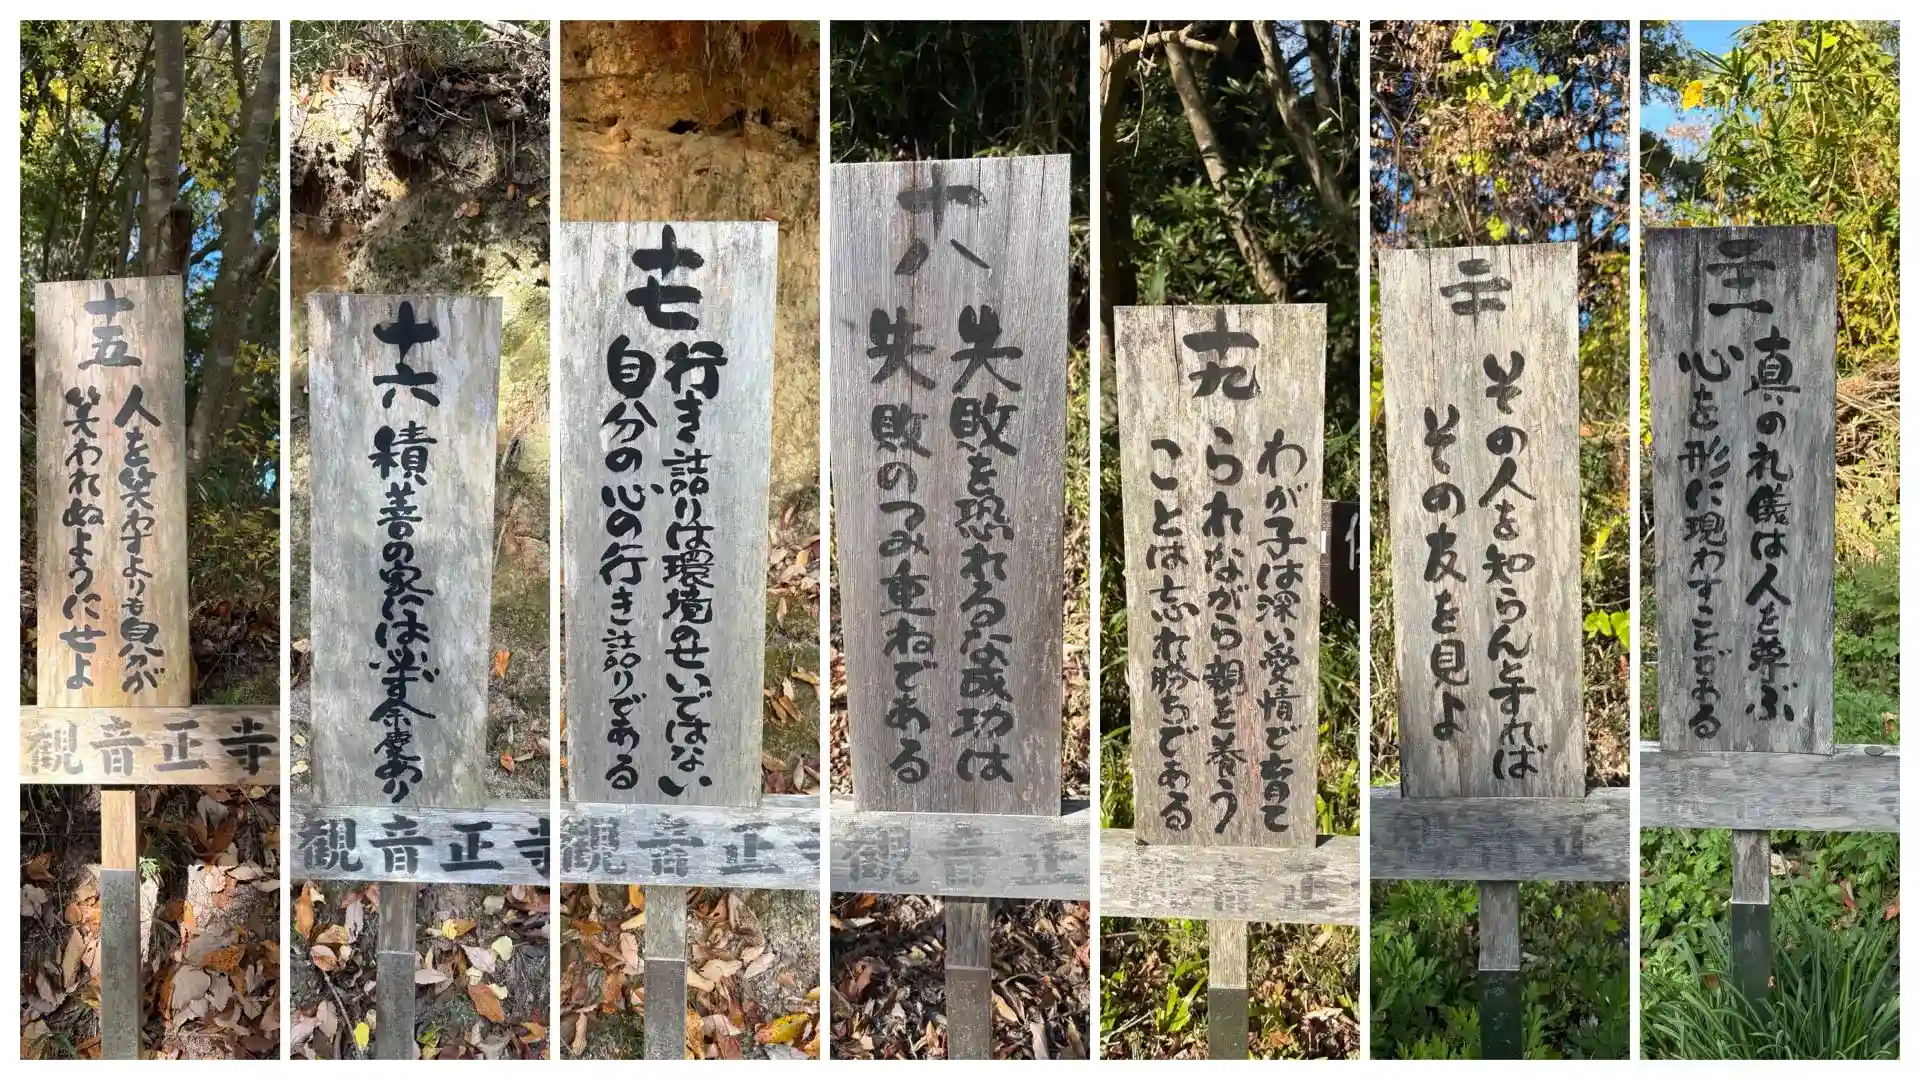 十五
人を笑わすよりも自分が
笑われぬようにせよ
観音正寺
十六
積善の家には必ず余慶あり
観音正寺
十七
行き詰りは環境のせいではない
自分の心の行き詰りである
観音正寺
十八
失敗を恐れるな成功は
失敗のつみ重ねである
観音正
十九
わが子は深い愛情で育て
られながら親を養う
ことは忘れ勝ちである
正
二十
その人を知らんとすれば
その友を見よ
二十一
真の礼儀は人を尊ぶ
心を形に現わすことである